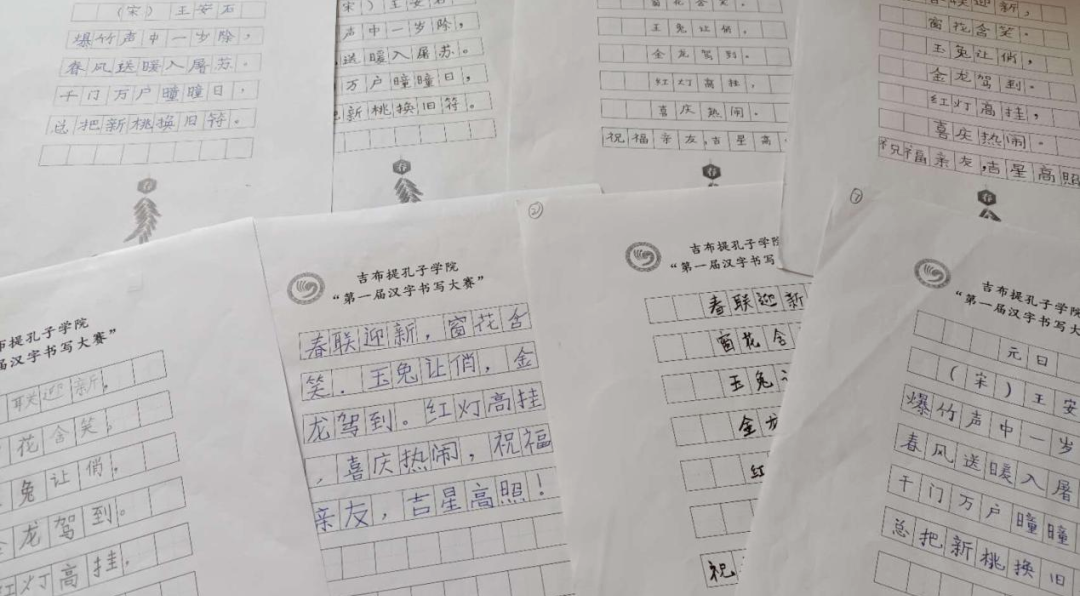 （宋）王安石
爆竹声中一岁除，
春风送暖入屠苏。
千门万户曈曈日，
总把新桃换旧符。
宋）王安石
声中一岁除，
送暖入屠苏。
万户曈曈日，
把新桃换旧符。
窗花含笑。
玉兔让俏，
金龙驾到。
红灯高挂，
喜庆热闹。
祝福亲友，吉星高
春联迎新，
窗花含笑。
玉兔让俏，
金龙驾到。
红灯高挂，
喜庆热闹。
祝福亲友，吉星高照
布提孔子学院
届汉字书写大赛”
联迎新，
花含笑，
兔让俏，
金龙驾到。
红灯高挂，
吉布提孔子学院
“第一届汉字书写大赛”
春联迎新，窗花含
笑．玉兔让俏，金
龙驾到。红灯高挂
，喜庆热闹，祝福
亲友，吉星高照！
2
吉布提孔子学院
“第一届汉字书写
春联迎新
窗花含
玉兔
金龙
红
祝
7
吉布提孔子学院
“第一届汉字书写大
元日
（宋）王安
爆竹声中一岁
春风送暖入屠
千门万户曈曈
总把新桃换旧